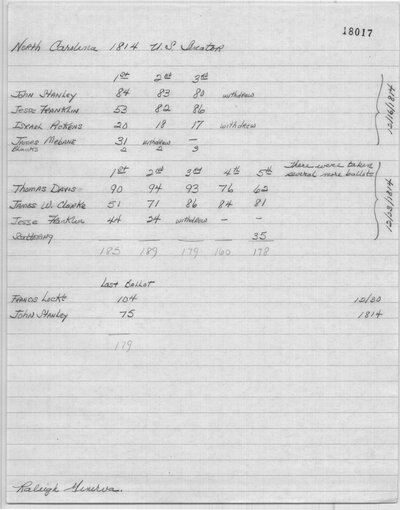 18017
North Carolina 1814 U.S. Senator
1st 2nd 3rd
John Stanley 84 83 80 withdrew
Jesse Franklin 53 82 86
Israel Pickens 20 18 17 withdrew
James Mebane 31 withdrew —
Blanks 2 2 3
12/16/1814
1st 2nd 3rd 4th 5th There were taken several more ballots
Thomas Davis 90 94 93 76 62
James W. Clarke 51 71 86 84 81
Jesse Franklin 44 24 withdrew — —
Scattering 35
185 189 179 160 178
12/23/1814
Last Ballot
Francis Locke 104 12/30
John Stanley 75 1814
179
Raleigh Minerva.